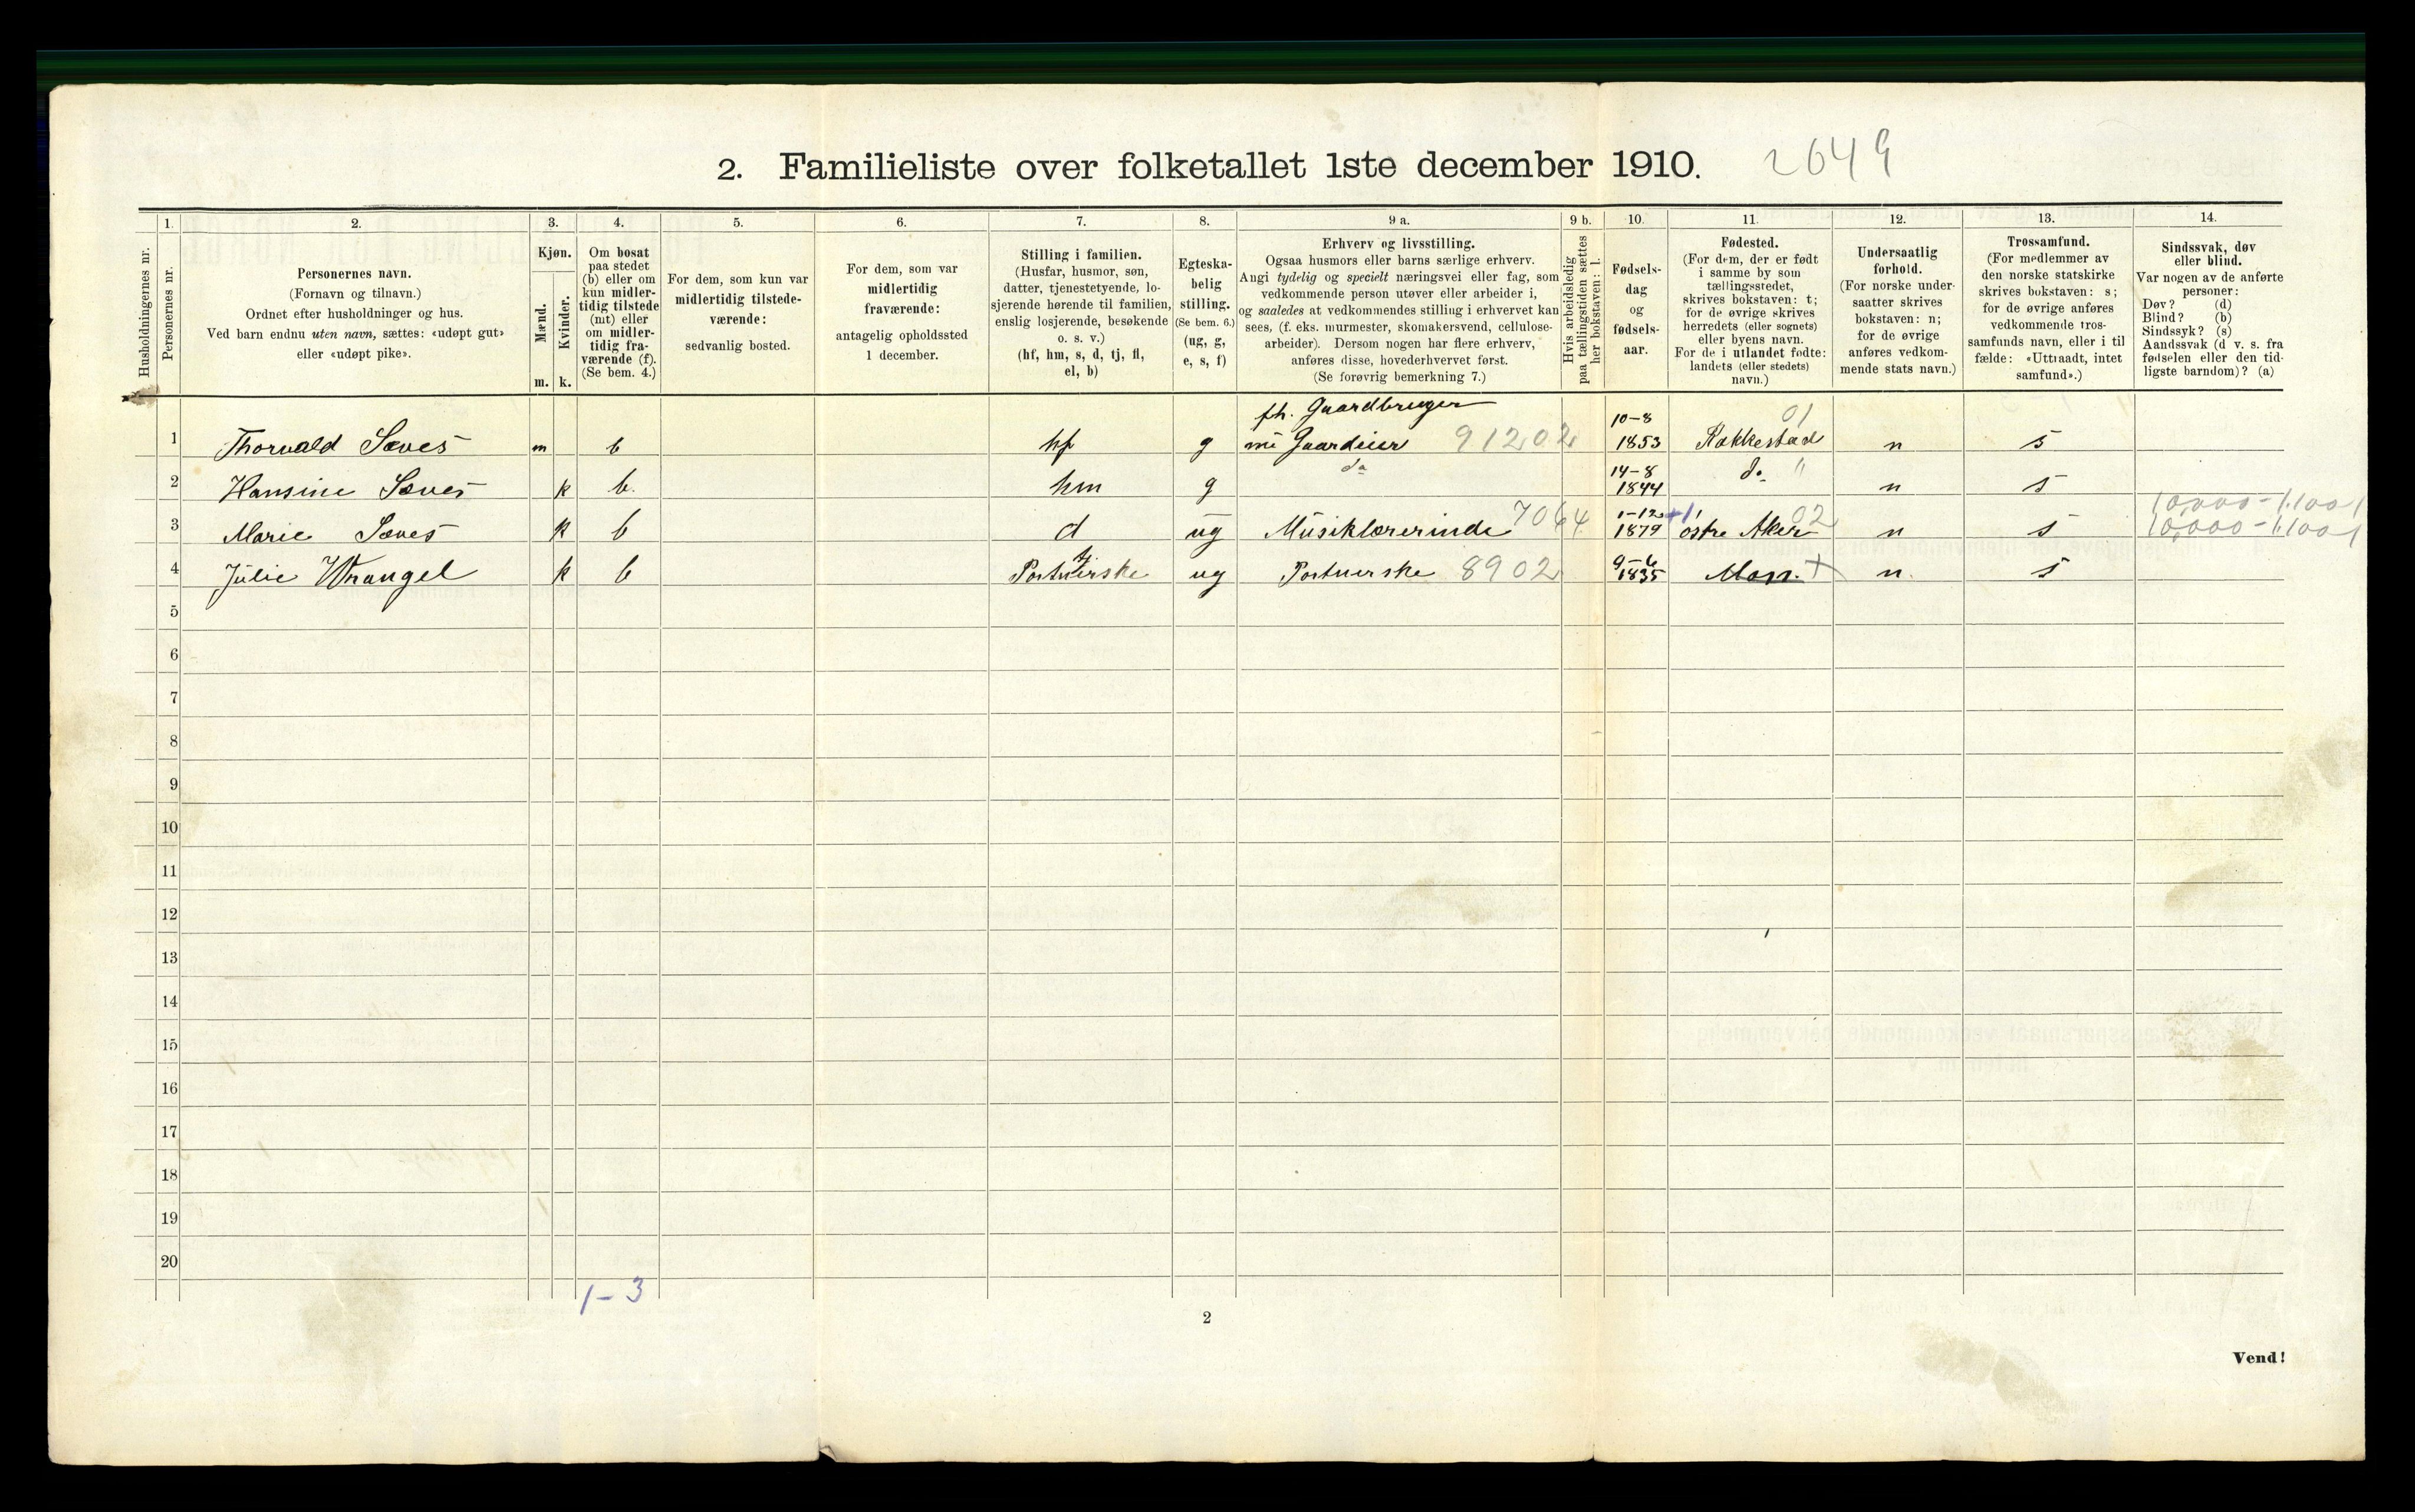 2. Familieliste over folketallet 1ste december 1910. 2649
1. 2. 3. 4. 5. 6. 7. 8. 9 a. 9 b. 10. 11. 12. 13. 14.
Husholdningernes nr.
Personernes nr.
Personernes navn.
(Fornavn og tilnavn.)
Ordnet efter husholdninger og hus.
Ved barn endnu uten navn, sættes: «udøpt gut»
eller «udøpt pike».
Kjøn.
Mænd.
Kvinder.
m. k.
Om bosat
paa stedet
(b) eller om
kun midler-
tidig tilstede
(mt) eller
om midler-
tidig fra-
værende (f).
(Se bem. 4.)
For dem, som kun var
midlertidig tilstede-
værende:
sedvanlig bosted.
For dem, som var
midlertidig
fraværende:
antagelig opholdssted
1 december.
Stilling i familien.
(Husfar, husmor, søn,
datter, tjenestetyende, lo-
sjerende hørende til familien,
enslig losjerende, besøkende
o. s. v.)
(hf, hm, s, d, tj, fl,
el, b)
Egteska-
belig
stilling.
(Se bem. 6.)
(ug, g,
e, s, f)
Erhverv og livsstilling.
Ogsaa husmors eller barns særlige erhverv.
Angi tydelig og specielt næringsvei eller fag, som
vedkommende person utøver eller arbeider i,
og saaledes at vedkommendes stilling i erhvervet kan
sees, (f. eks. murmester, skomakersvend, cellulose-
arbeider). Dersom nogen har flere erhverv,
anføres disse, hovederhvervet først.
(Se forøvrig bemerkning 7.)
Hvis arbeidsledig
paa tællingstiden sættes
her bokstaven: l.
Fødsels-
dag
og
fødsels-
aar.
Fødested.
(For dem, der er født
i samme by som
tællingsstedet,
skrives bokstaven: t;
for de øvrige skrives
herredets (eller sognets)
eller byens navn.
For de i utlandet fødte:
landets (eller stedets)
navn.)
Undersaatlig
forhold.
(For norske under-
saatter skrives
bokstaven: n;
for de øvrige
anføres vedkom-
mende stats navn.)
Trossamfund.
(For medlemmer av
den norske statskirke
skrives bokstaven: s;
for de øvrige anføres
vedkommende tros-
samfunds navn, eller i til
fælde: «Uttraadt, intet
samfund».)
Sindssvak, døv
eller blind.
Var nogen av de anførte
personer:
Døv? (d)
Blind? (b)
Sindssyk? (s)
Aandssvak (d v. s. fra
fødselen eller den tid-
ligste barndom)? (a)
fh. Gaardbruger 10-8 01
1 Thorvald Sæves m b hf g nu Gaardeier 91202 1853 Rakkestad n s
do 14-8
2 Hansine Sæves k b. hm g 1844 do " n s
10,000-1.100 1
1-12 +1 02
3 Marie Sæves k b d ug Musiklærerinde 7064 1879 östre Aker n s 10,000-1.100 1
tj 9-6
4 Julie Wrangel k b Portnerske ug Portnerske 8902 1835 Moss. + n. s
5
6
7
8
9
10
11
12
13
14
15
16
17
18
19
20
1-3
2
Vend!